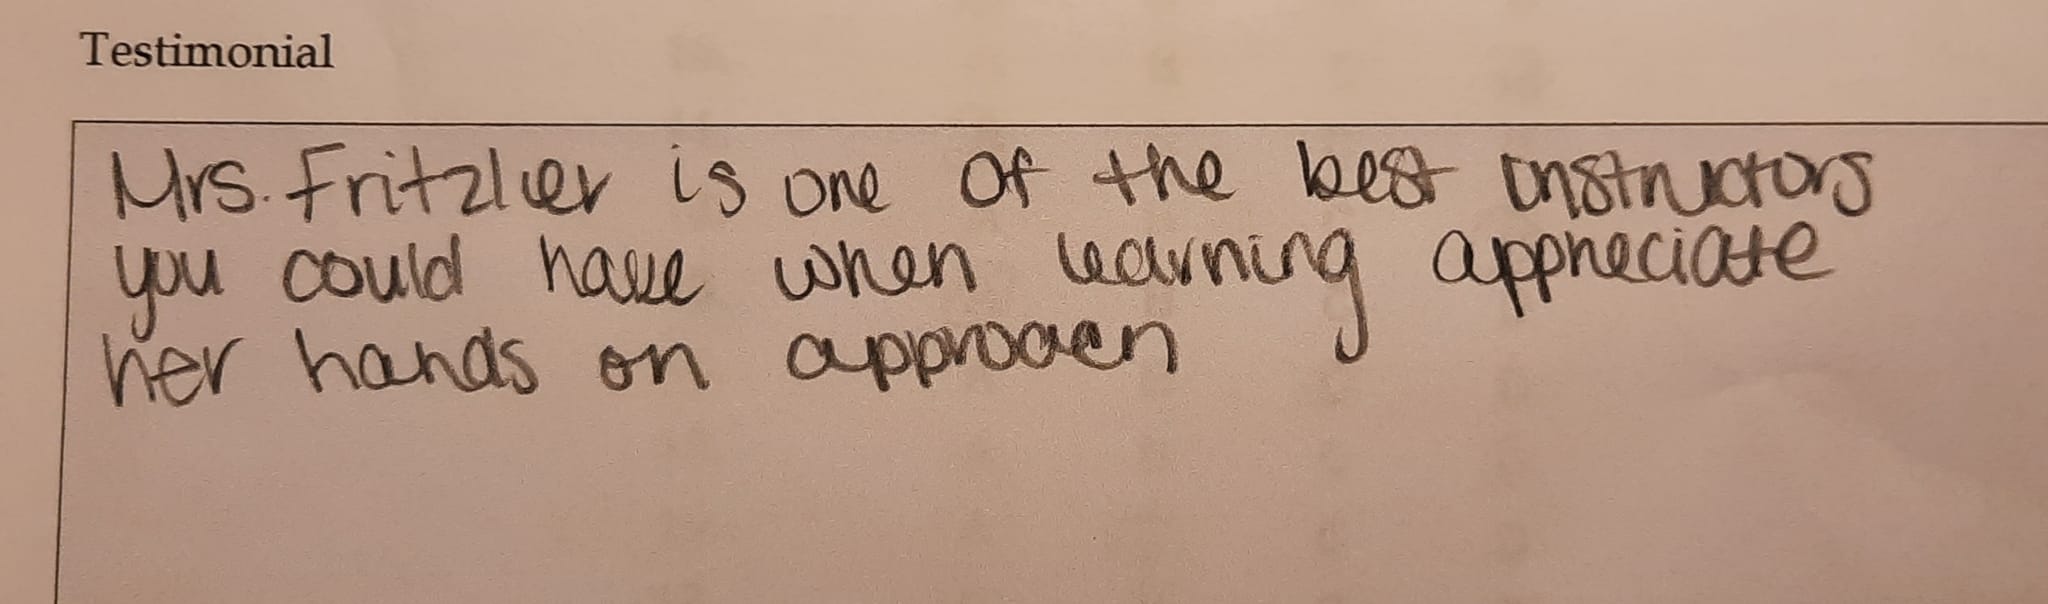 Testimonial
Mrs. Fritzler is one of the best instructors
you could have when learning appreciate
her hands on approach